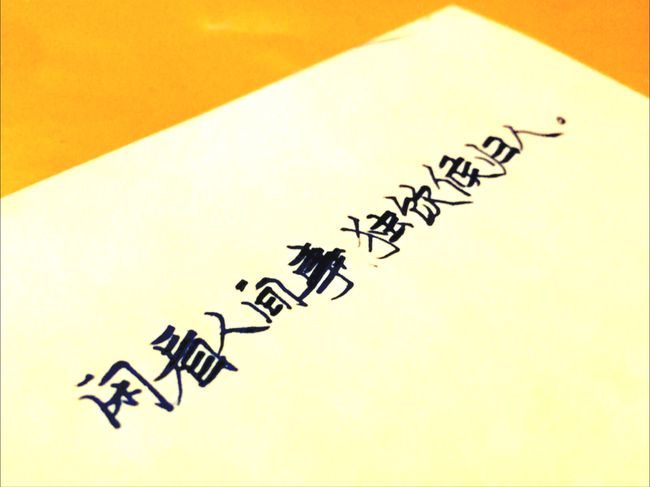 闲看人间事独饮候归人。